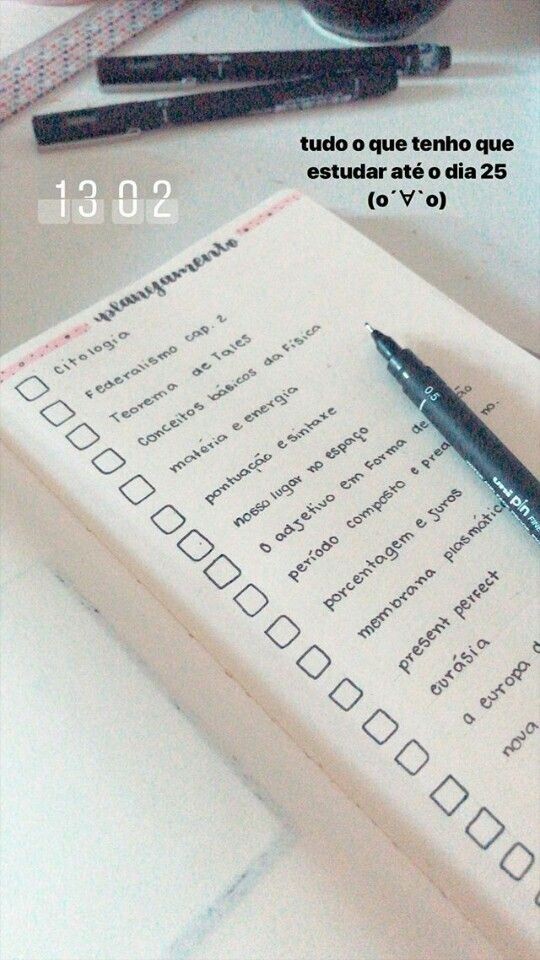 tudo o que tenho que
estudar até o dia 25
(o´∀`o)
13 02
planejamento
Citologia
Federalismo cap. 2
Teorema de Tales
Conceitos básicos da Física
matéria e energia
pontuação e sintaxe
nosso lugar no espaço
o adjetivo em forma de
período composto e
porcentagem e juros
membrana plasmática
present perfect
eurásia
a europa
nova
0.5
uni pin FINE